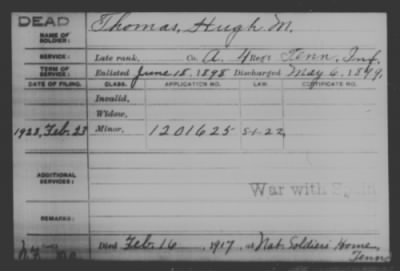 DEAD
NAME OF SOLDIER: Thomas, Hugh M.
SERVICE: Late rank, Co. A. 4 Reg't Tenn. Inf.
TERM OF SERVICE: Enlisted June 18, 1898 Discharged May 6, 1899.
DATE OF FILING. CLASS. APPLICATION NO. LAW. CERTIFICATE NO.
Invalid,
Widow,
1923, Feb. 23 Minor, 1201625
ADDITIONAL SERVICES:
War with Spain
REMARKS:
Died Feb. 16, 1917, at Nat. Soldiers Home,
Tenn.